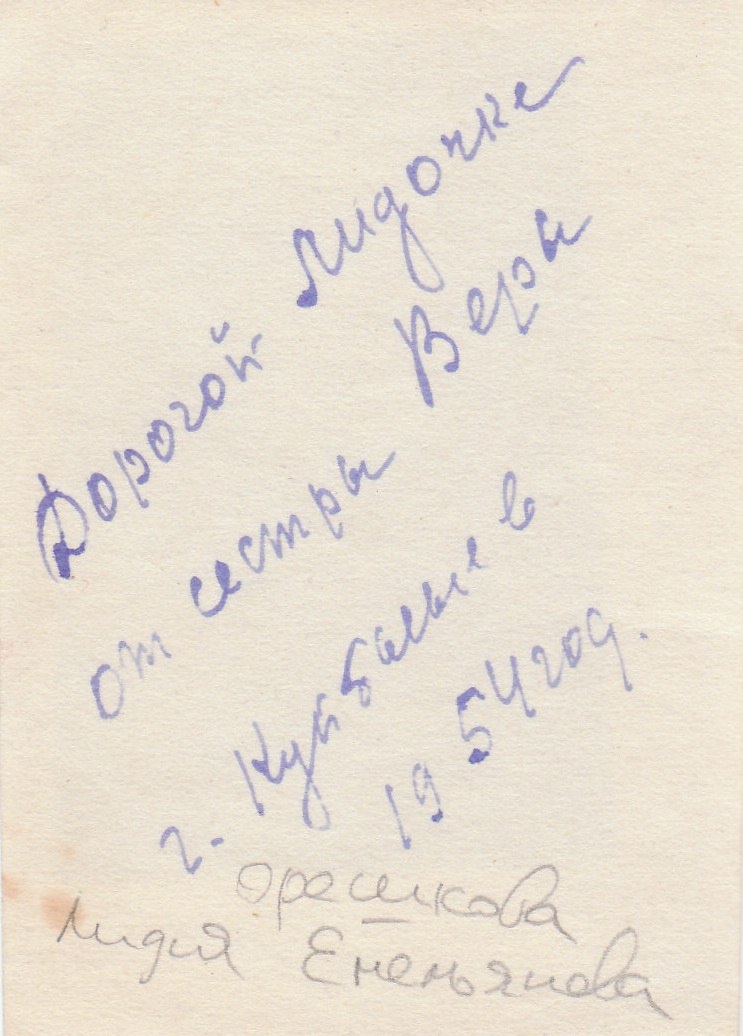 Дорогой Лидочке
от сестры Веры
г. Куйбышев
1954 год.
Орешкова
Лидия Емельянова